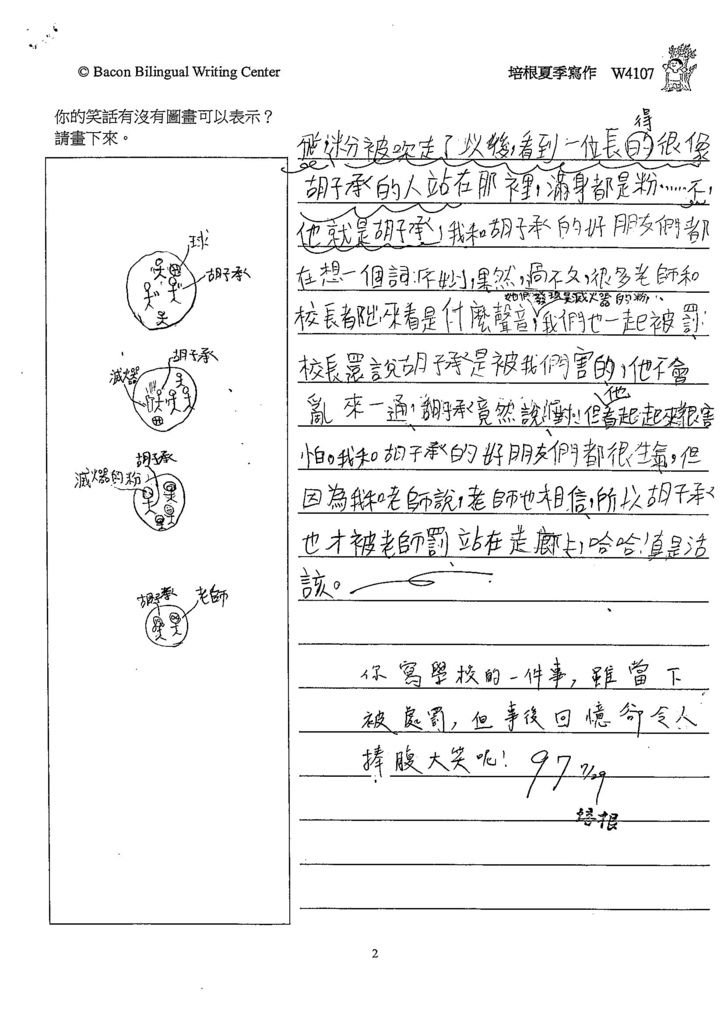 © Bacon Bilingual Writing Center
培根夏季寫作 W4107
你的笑話有沒有圖畫可以表示？
請畫下來。
球
胡子承
胡子承
滅火器
胡子承
滅火器的粉
胡子承
老師
得
粉被吹走了以後，看到一位長的很像
胡子承的人站在那裡，滿身都是粉……不，
他就是胡子承，我和胡子承的好朋友們都
在想一個詞：不妙，果然，過不久，很多老師和
發現是滅火器的粉
校長都出來看是什麼聲音，我們也一起被罰
校長還說胡子承是被我們害的，他不會
他
亂來一通，胡子承竟然說對！但看起起來很害
怕。我和胡子承的好朋友們都很生氣，但
因為我和老師說，老師也相信，所以胡子承
也才被老師罰站在走廊上，哈哈！真是活
該。
你寫學校的一件事，雖當下
被處罰，但事後回憶卻令人
捧腹大笑呢！97 7/29
培根
2